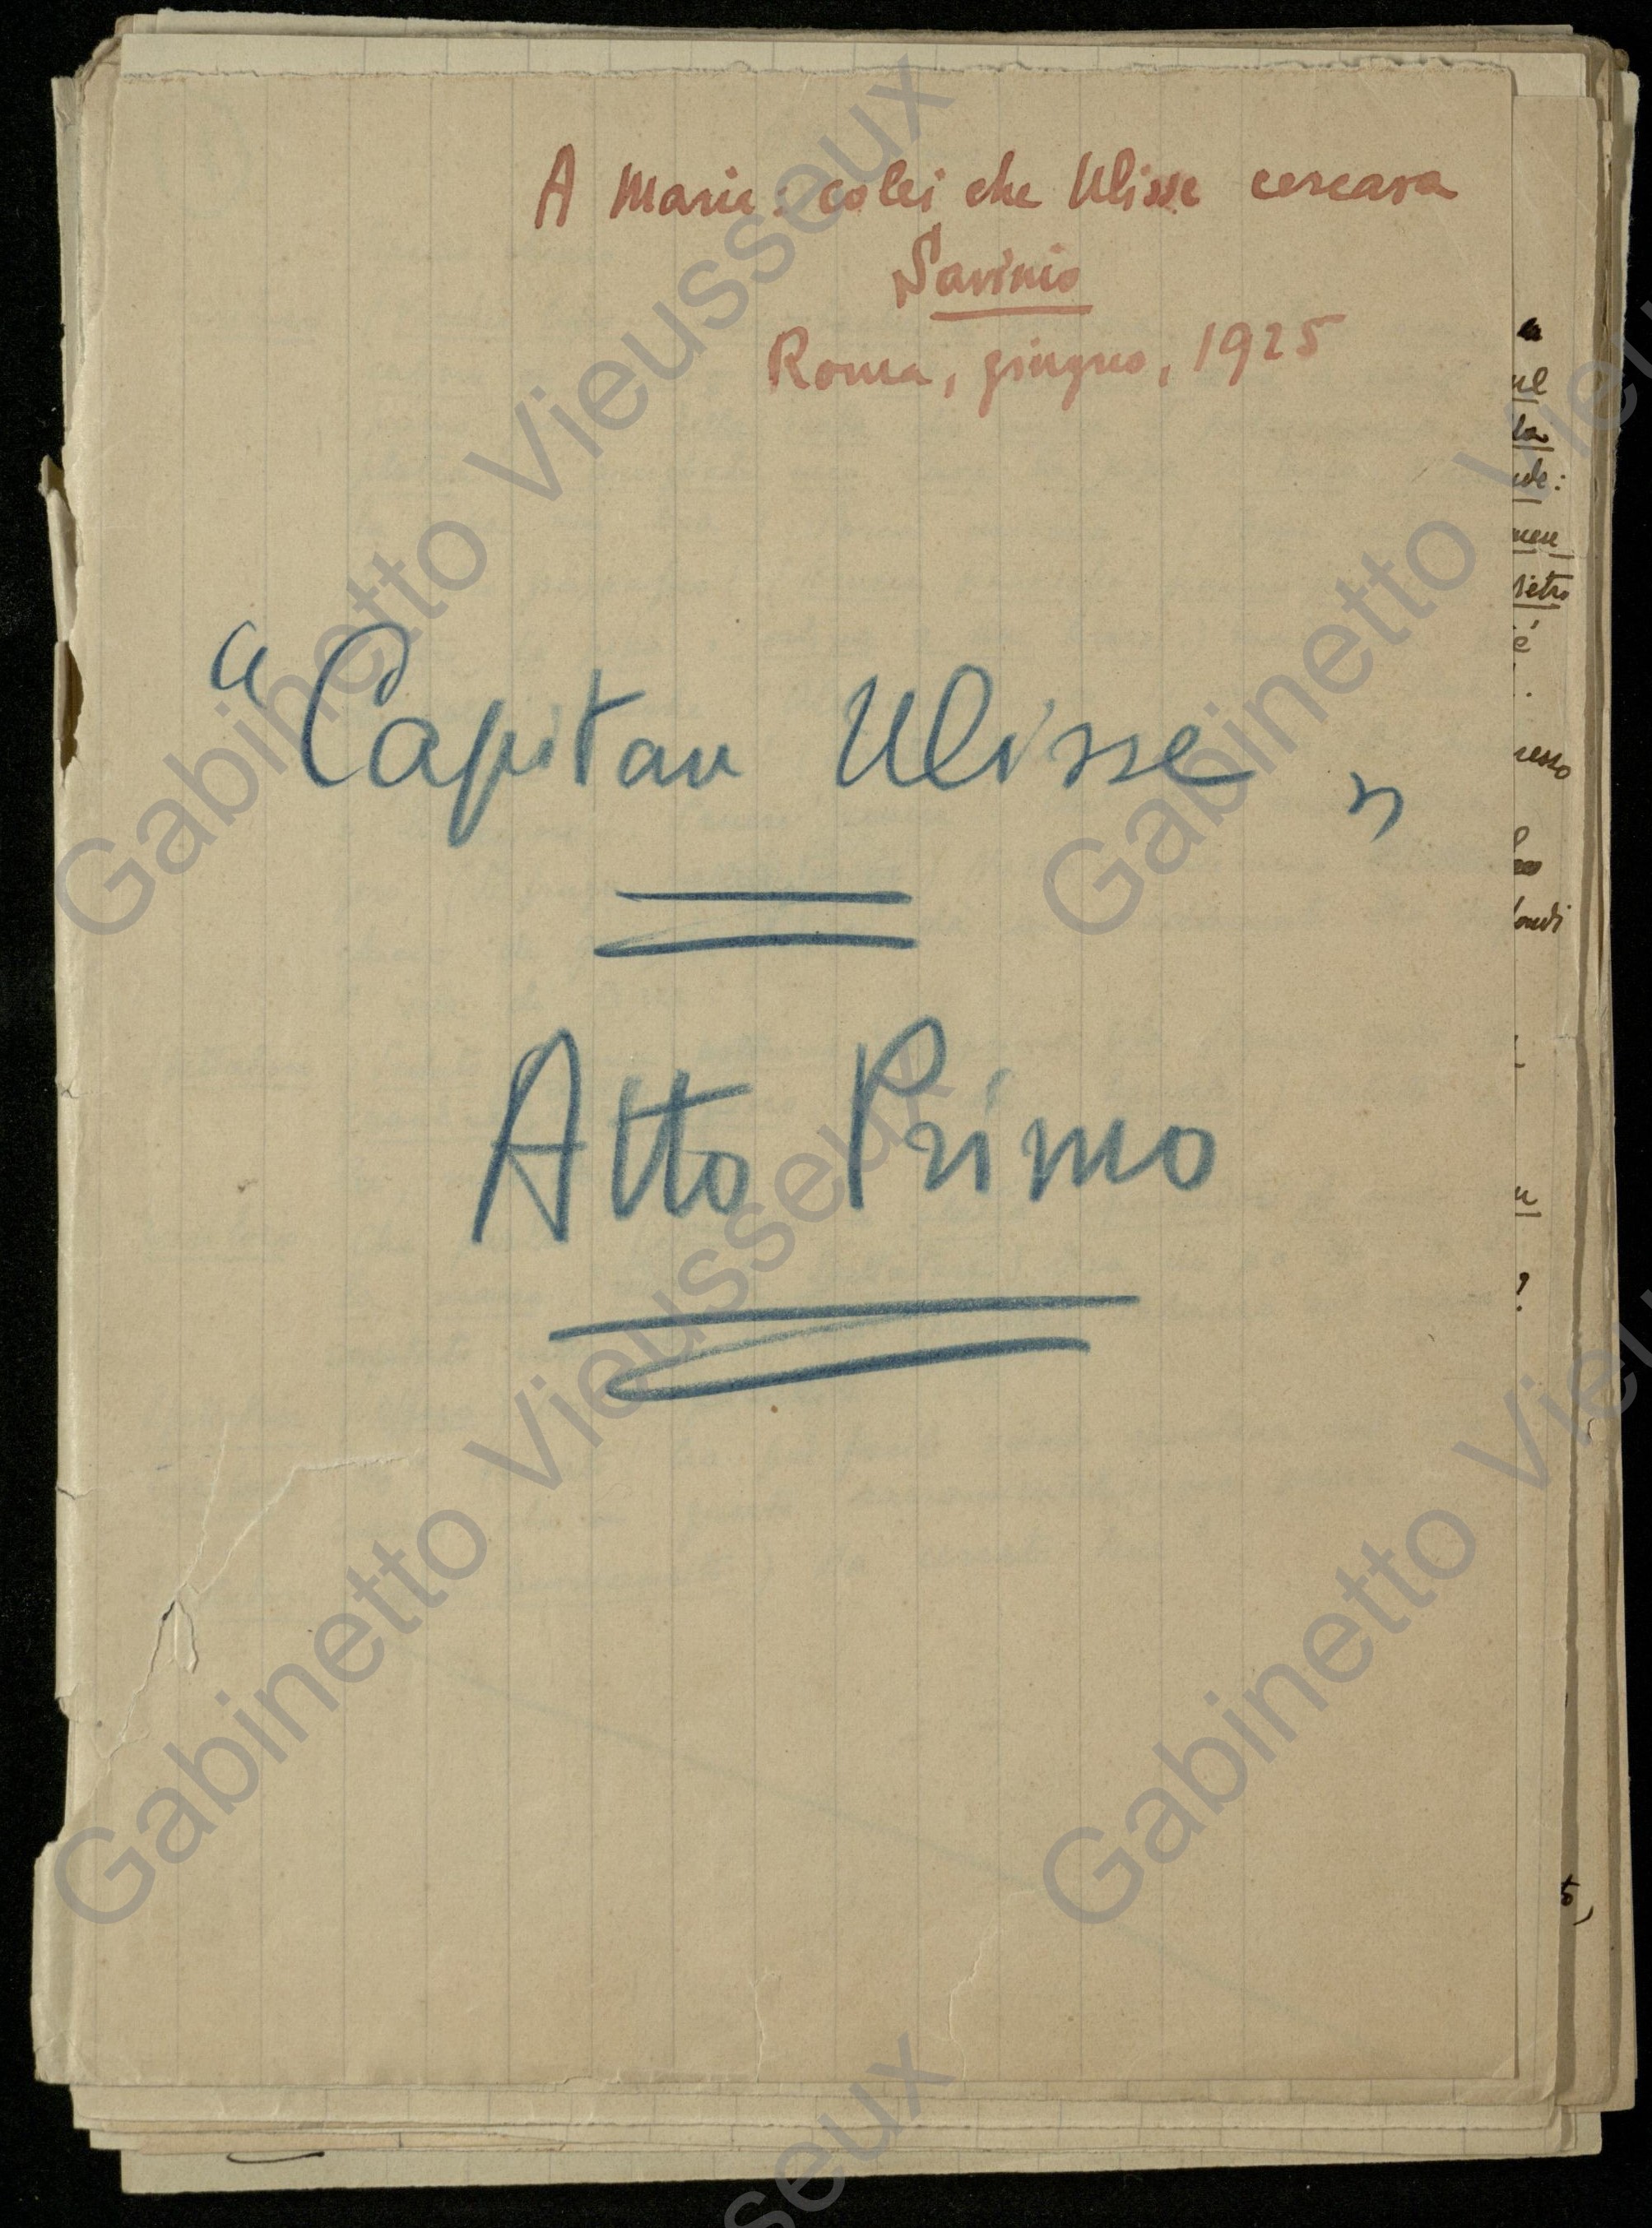 A Maria: colei che Ulisse cercava
Savinio
Roma, giugno, 1925
"Capitan Ulisse"
Atto Primo
nel
la
pietro
è
?
to,
Gabinetto Vieusseux
Gabinetto Vieusseux
Gabinetto Vieusseux
Gabinetto Vieusseux